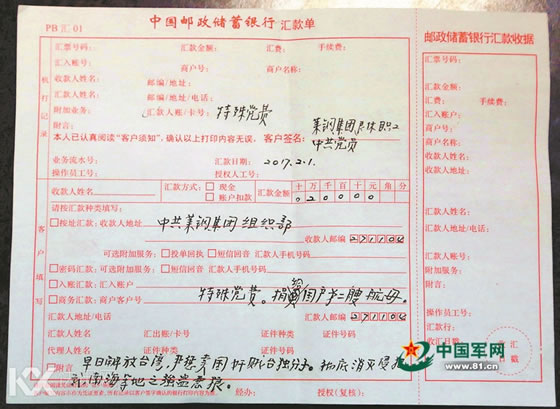 PB汇01
中国邮政储蓄银行 汇款单
邮政储蓄银行汇款收据
机打记录
汇票号码: 汇款金额: 汇费: 手续费:
汇入账号: 商户号: 商户名称:
收款人姓名: 邮编/地址:
汇款人姓名: 邮编/地址/电话:
附加业务: 汇款人账/卡号: 特殊党费
附言:
莱钢集团退休职工
本人已认真阅读“客户须知”,确认以上打印内容无误。 客户签名:
中共党员
业务流水号: 汇款日期: 2017.2.1.
操作员工号: 授权人工号:
客户填写
收款人姓名: 汇款方式: 现金 账户扣款 汇款金额 十万千百十元角分
020000
请按汇款种类填写:
按址汇款: 收款人地址 中共莱钢集团组织部
收款人邮编 271104
可选附加服务: 投单回执 短信回音 汇款人手机号码
密码汇款: 可选附加服务: 短信回音 汇款人手机号码
入账汇款: 汇入账户
商务汇款: 商户客户号 特殊党费。捐给国产第二艘航母。
汇款人邮编 271104
汇款人姓名: 汇出账/卡号: 证件种类: 证件号码:
代理人姓名: 证件种类: 证件号码:
附言:
早日解放台湾,严惩卖国奸贼台独分子。彻底消灭侵占
我南海等地之强盗恶狼。
经办: 授权(复核):
汇票号码:
汇款金额:
汇费: 手续费:
汇入账户:
商户号:
商户名称:
收款人姓名:
汇款人姓名:
汇款人账/卡号:
附加服务:
附言:
操作员工号:
汇款行:
收汇日期:
收汇
日戳
中国军网
www.81.cn